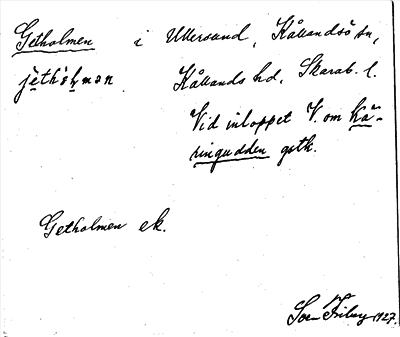 Getholmen i Ullersund, Kållandsö sn,
jetħòlmon Kållands hd, Skarab. l.
Vid inloppet V. om Kä-
ringudden gsth.
Getholmen ek.
Sven Friberg 1927.